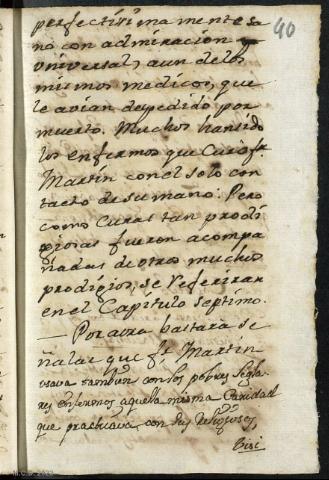 40
perfectissimamente sa
nó con admiracion
universal, aun de los
mismos medicos, que
le avian despedido por
muerto. Muchos han sido
los enfermos que curó fr.
Martin con el solo con
tacto de su mano. Pero
como curas tan prodi
giosas fueron acompa
ñadas de otros muchos
prodigios, se referiran
en el Capitulo septimo.
— Por aora bastara se
ñalar que fr. Martin
usava tambien con los pobres segla
res enfermos aquella misma Caridad
que practicava con sus religiosos,
Visi